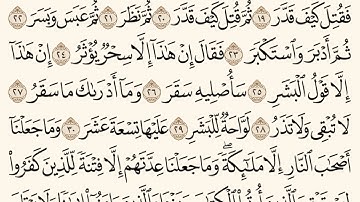 فَقُتِلَ كَيْفَ قَدَّرَ ١٩ ثُمَّ قُتِلَ كَيْفَ قَدَّرَ ٢٠ ثُمَّ نَظَرَ ٢١ ثُمَّ عَبَسَ وَبَسَرَ ٢٢
ثُمَّ أَدْبَرَ وَٱسْتَكْبَرَ ٢٣ فَقَالَ إِنْ هَٰذَآ إِلَّا سِحْرٌ يُؤْثَرُ ٢٤ إِنْ هَٰذَآ
إِلَّا قَوْلُ ٱلْبَشَرِ ٢٥ سَأُصْلِيهِ سَقَرَ ٢٦ وَمَآ أَدْرَىٰكَ مَا سَقَرُ ٢٧
لَا تُبْقِى وَلَا تَذَرُ ٢٨ لَوَّاحَةٌ لِّلْبَشَرِ ٢٩ عَلَيْهَا تِسْعَةَ عَشَرَ ٣٠ وَمَا جَعَلْنَآ
أَصْحَٰبَ ٱلنَّارِ إِلَّا مَلَٰٓئِكَةً ۙ وَمَا جَعَلْنَا عِدَّتَهُمْ إِلَّا فِتْنَةً لِّلَّذِينَ كَفَرُوا۟